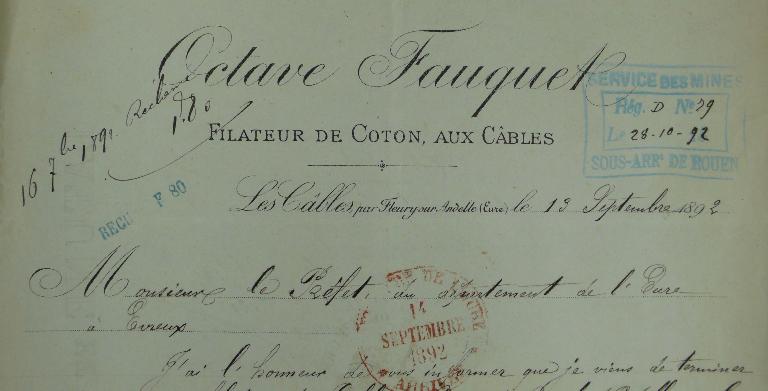 Octave Fauquet
FILATEUR DE COTON, AUX CÂBLES
SERVICE DES MINES
Rég. D N° 39
Le 28-10-92
SOUS-ARRt DE ROUEN
16 7bre 189
REÇU F 80
Les Câbles, par Fleury sur Andelle (Eure) le 13 Septembre 1892
Monsieur le Préfet, du département de l'Eure
à Evreux
14
SEPTEMBRE
1892
J'ai l'honneur de vous informer que je viens de terminer